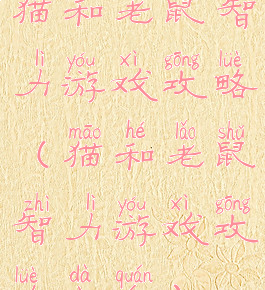 猫和老鼠智
lì yóu xì gōng lüè
力游戏攻略
māo hé lǎo shǔ
(猫和老鼠
zhì lì yóu xì gōng
智力游戏攻
lüè dà quán